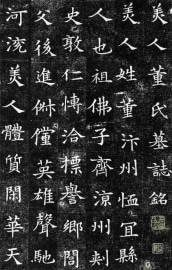 美人董氏墓誌銘
美人姓董汴州恤宜縣
人也祖佛子齊涼州刺
史敦仁博洽標譽鄉閭
父後進俶儻英雄聲馳
河兗美人體質閑華天